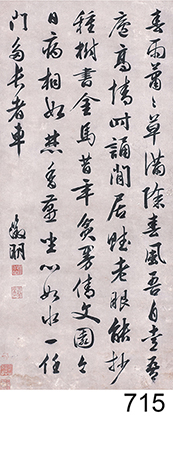 春雨蕭〻草滿除春風吾自愛吾
廬高情時誦閒居賦老眼能抄
種樹書金馬昔年貧曼倩文園今
日病相如焚香燕坐心如水一任
門多長者車 徵明
715